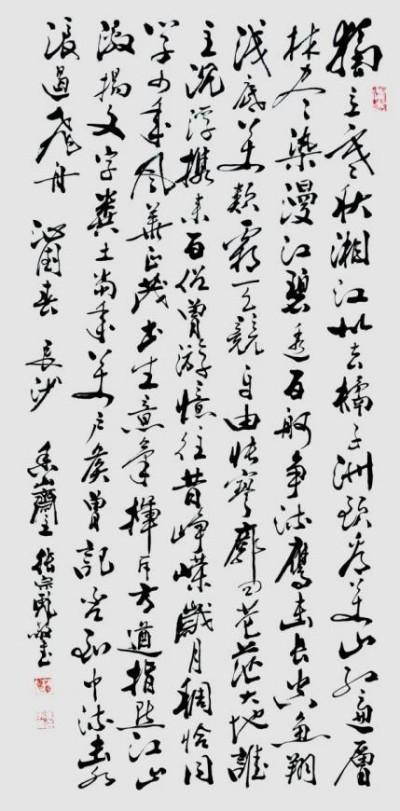 獨立寒秋湘江北去橘子洲頭看萬山紅遍層
林尽染漫江碧透百舸爭流鷹擊長空魚翔
淺底萬類霜天競自由悵寥廓問蒼茫大地誰
主沉浮攜來百侶曾游憶往昔崢嶸歲月稠恰同
學少年風華正茂書生意氣揮斥方遒指點江山
激揚文字糞土當年萬戶侯曾記否到中流擊水
浪遏飛舟 沁園春 長沙 山齋主